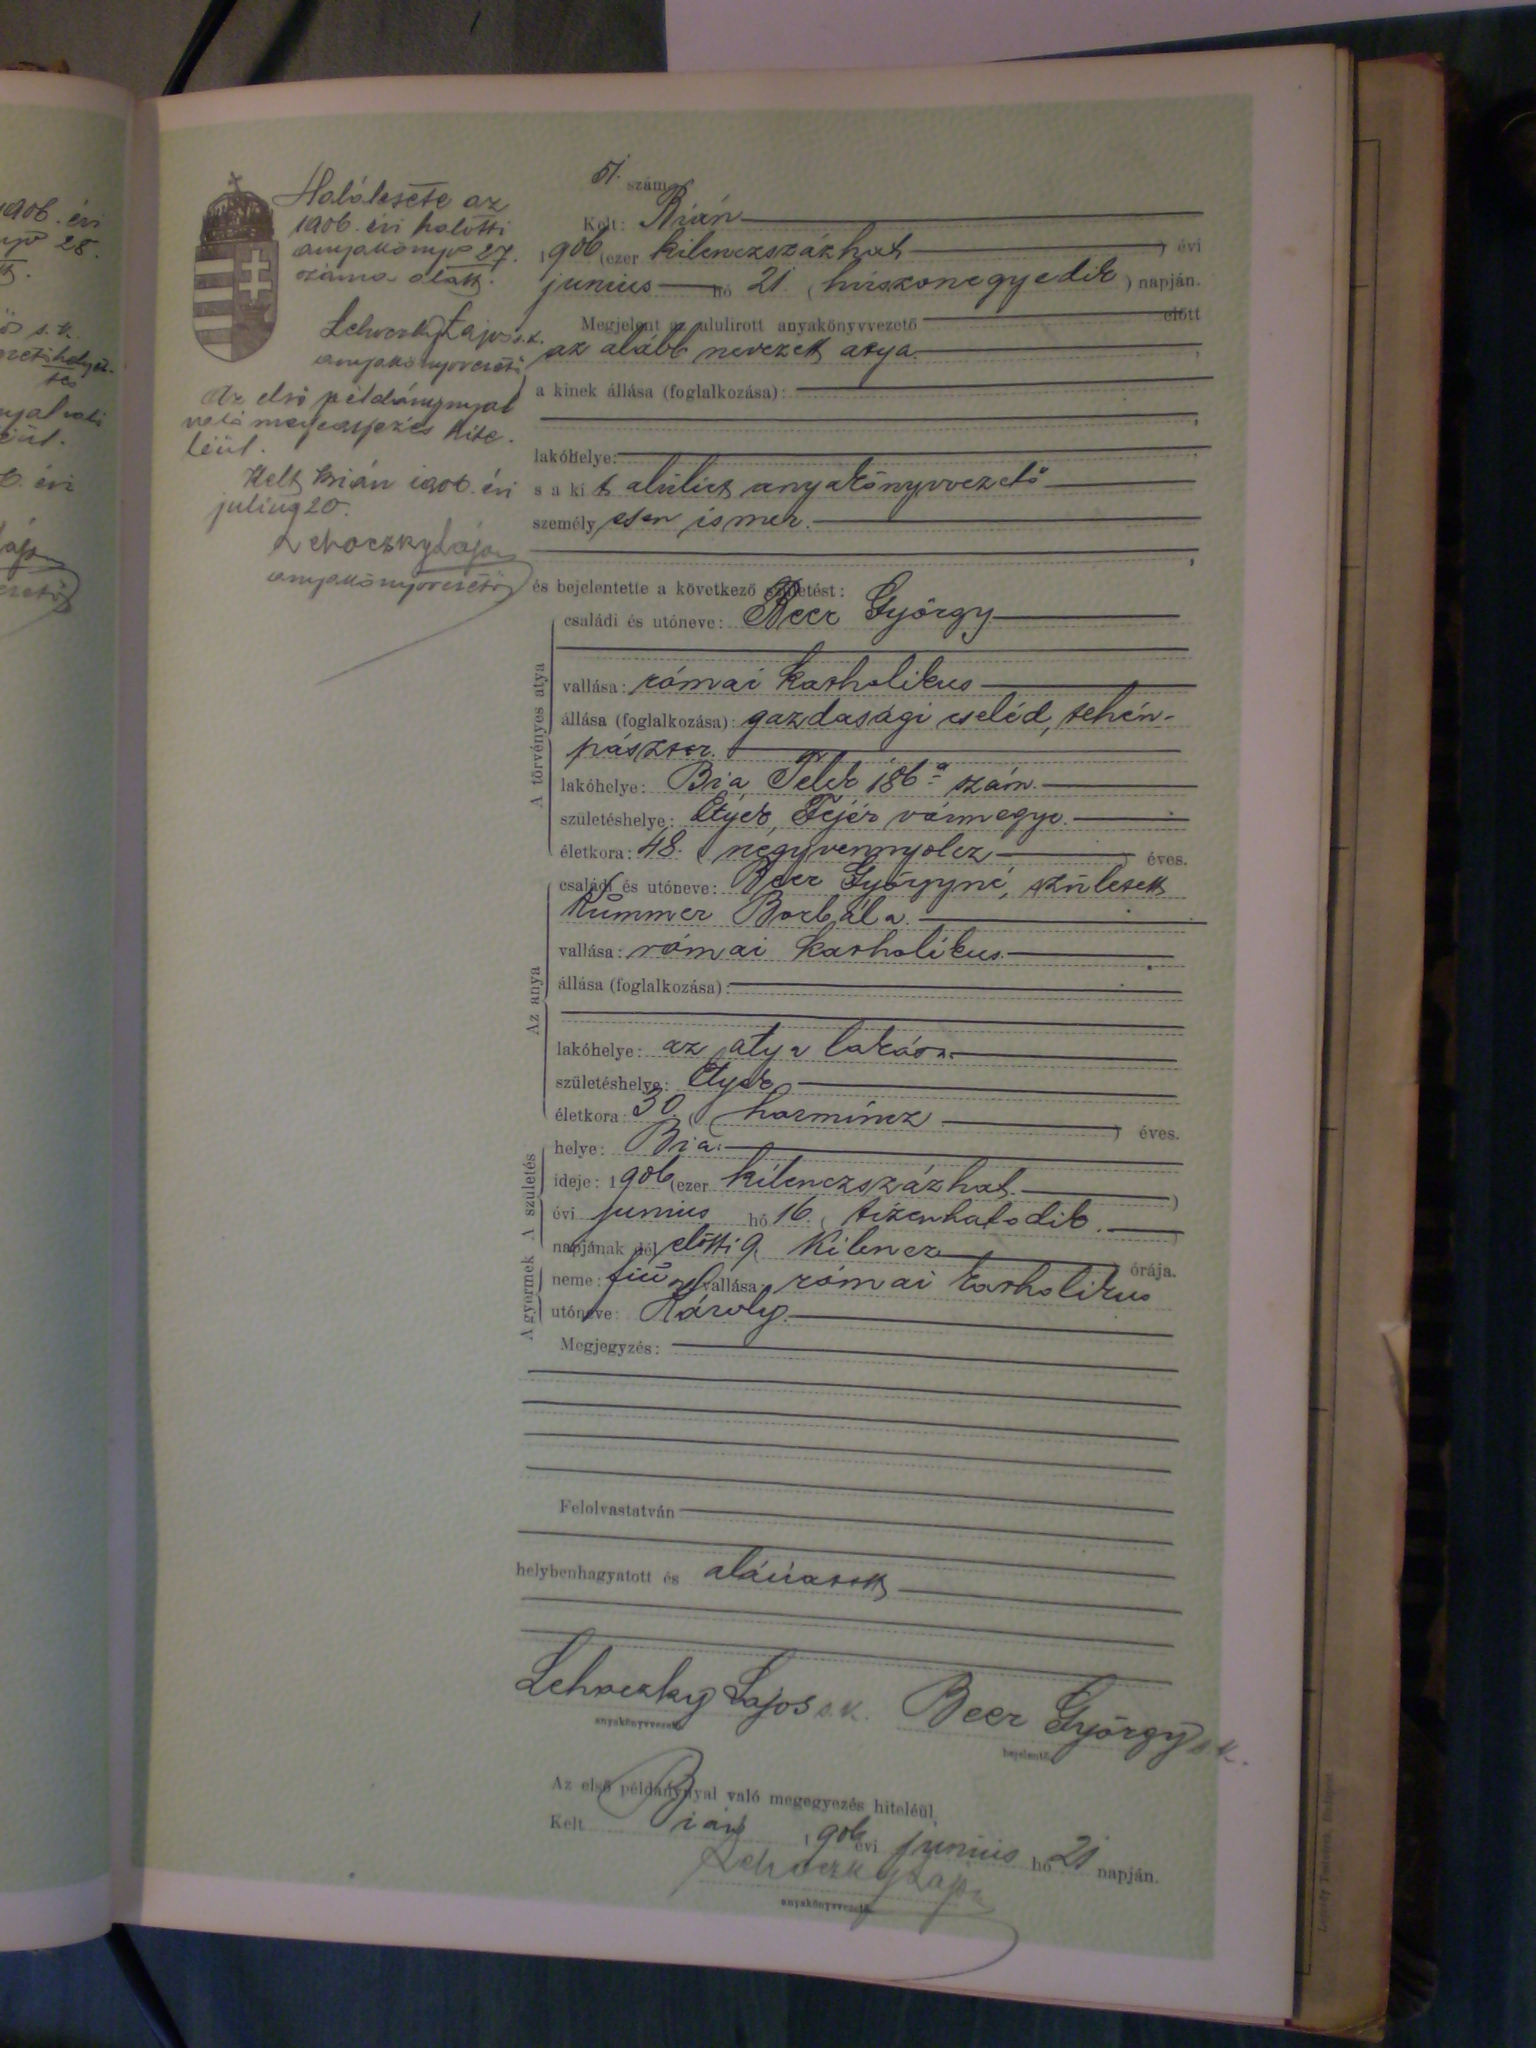 1906. évi
28.
s. k.
évi
Halálesete az
1906. évi halotti
anyakönyv 27.
száma alatt.
Lehoczky Lajos s. k.
anyakönyvvezető
Az első példánynyal
való megegyezés hite-
léül.
Kelt Bián 1906. évi
julius 20.
Lehoczky Lajos
anyakönyvvezető
51. szám
Kelt: Bián
1906 (ezer kilenczszázhat ) évi
junius hó 21. (huszonegyedik ) napján.
Megjelent az alulirott anyakönyvvezető előtt
az alább nevezett atya
a kinek állása (foglalkozása):
lakóhelye:
s a kit alulirt anyakönyvvezető
személyesen ismer.
és bejelentette a következő születést:
A törvényes atya
családi és utóneve: Beer György
vallása: római katholikus
állása (foglalkozása): gazdasági cseléd, tehén-
pásztor.
lakóhelye: Bia Telek 186 a szám.
születéshelye: Etyek, Fejér vármegye.
életkora: 48. (negyvennyolcz ) éves.
Az anya
családi és utóneve: Beer Györgyné, született
Kummer Borbála.
vallása: római katholikus.
állása (foglalkozása):
lakóhelye: az atya lakása.
születéshelye: Etyek
életkora: 30. (harmincz ) éves.
A születés
helye: Bia.
ideje: 1906 (ezer kilenczszázhat. )
évi junius hó 16. (tizenhatodik. )
napjának dél előtti 9 (kilencz ) órája.
A gyermek
neme: fiú vallása: római katholikus
utóneve: Károly.
Megjegyzés:
Felolvastatván
helybenhagyatott és aláiratott
Lehoczky Lajos s. k. Beer György s. k.
anyakönyvvezető bejelentő
Az első példánynyal való megegyezés hiteléül
Kelt Bián 1906 évi junius hó 21 napján.
Lehoczky Lajos
anyakönyvvezető